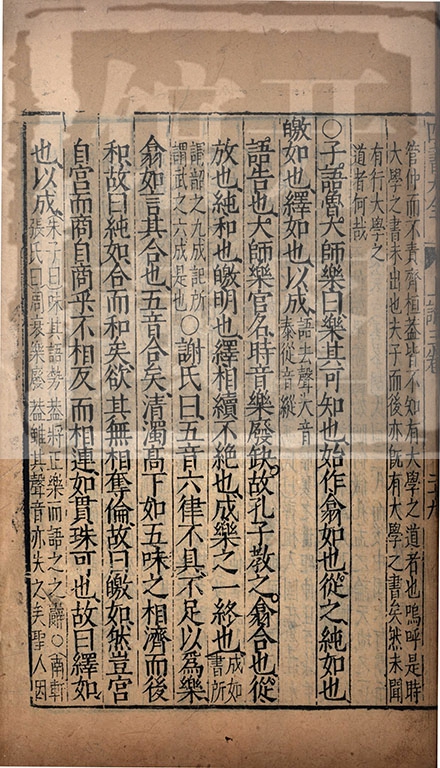 管仲而不責齊桓蓋皆不知有大學之道者也嗚呼是時
大學之書未出也夫子而後亦旣有大學之書矣然未聞
有行大學之
道者何哉
○子語魯大師樂曰樂其可知也始作翕如也從之純如也
皦如也繹如也以成語去聲大音
泰從音縱
語告也大師樂官名時音樂廢缺故孔子教之翕合也從
放也純和也皦明也繹相續不絶也成樂之一終也成如
書所
謂韶之九成記所
謂武之六成是也○謝氏曰五音六律不具不足以爲樂
翕如言其合也五音合矣清濁高下如五味之相濟而後
和故曰純如合而和矣欲其無相奪倫故曰皦如然豈宮
自宮而商自商乎不相反而相連如貫珠可也故曰繹如
也以成朱子曰味其語勢蓋將正樂而語之之辭○南軒
張氏曰周衰樂廢蓋雖其聲音亦失之矣聖人因